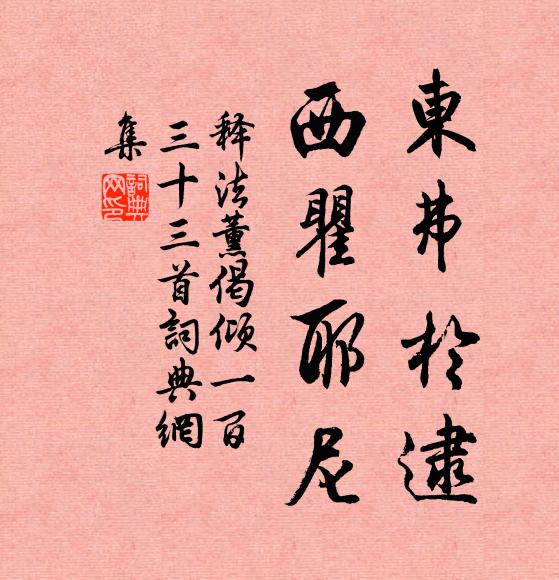 東弗於逮
西瞿耶尼
释法薰偈倾一百
三十三首詞典網
集
詞典
网印